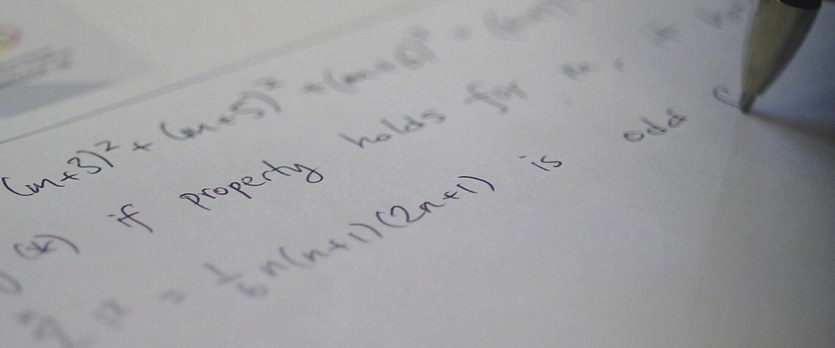 (m+3)² + (m+5)² + (m+6)² =
(*) if property holds for m, it
= 1/6 n(n+1)(2n+1) is odd